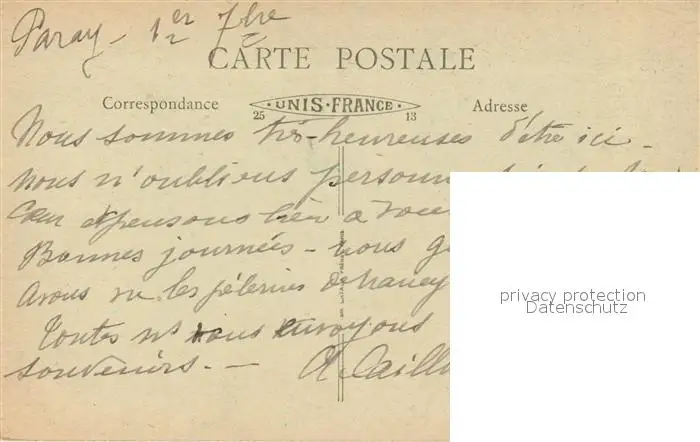 Paray - 1er 7bre
CARTE POSTALE
Correspondance
25 UNIS-FRANCE 13
Adresse
Nous sommes très-heureuses d'être ici -
nous n'oublions personn
Cœur et pensons bien à vous
Bonnes journées - nous
avons vu les pèlerins de nancy
privacy protection
Datenschutz
Toutes ns vous envoyons
souvenirs. - A. Caill